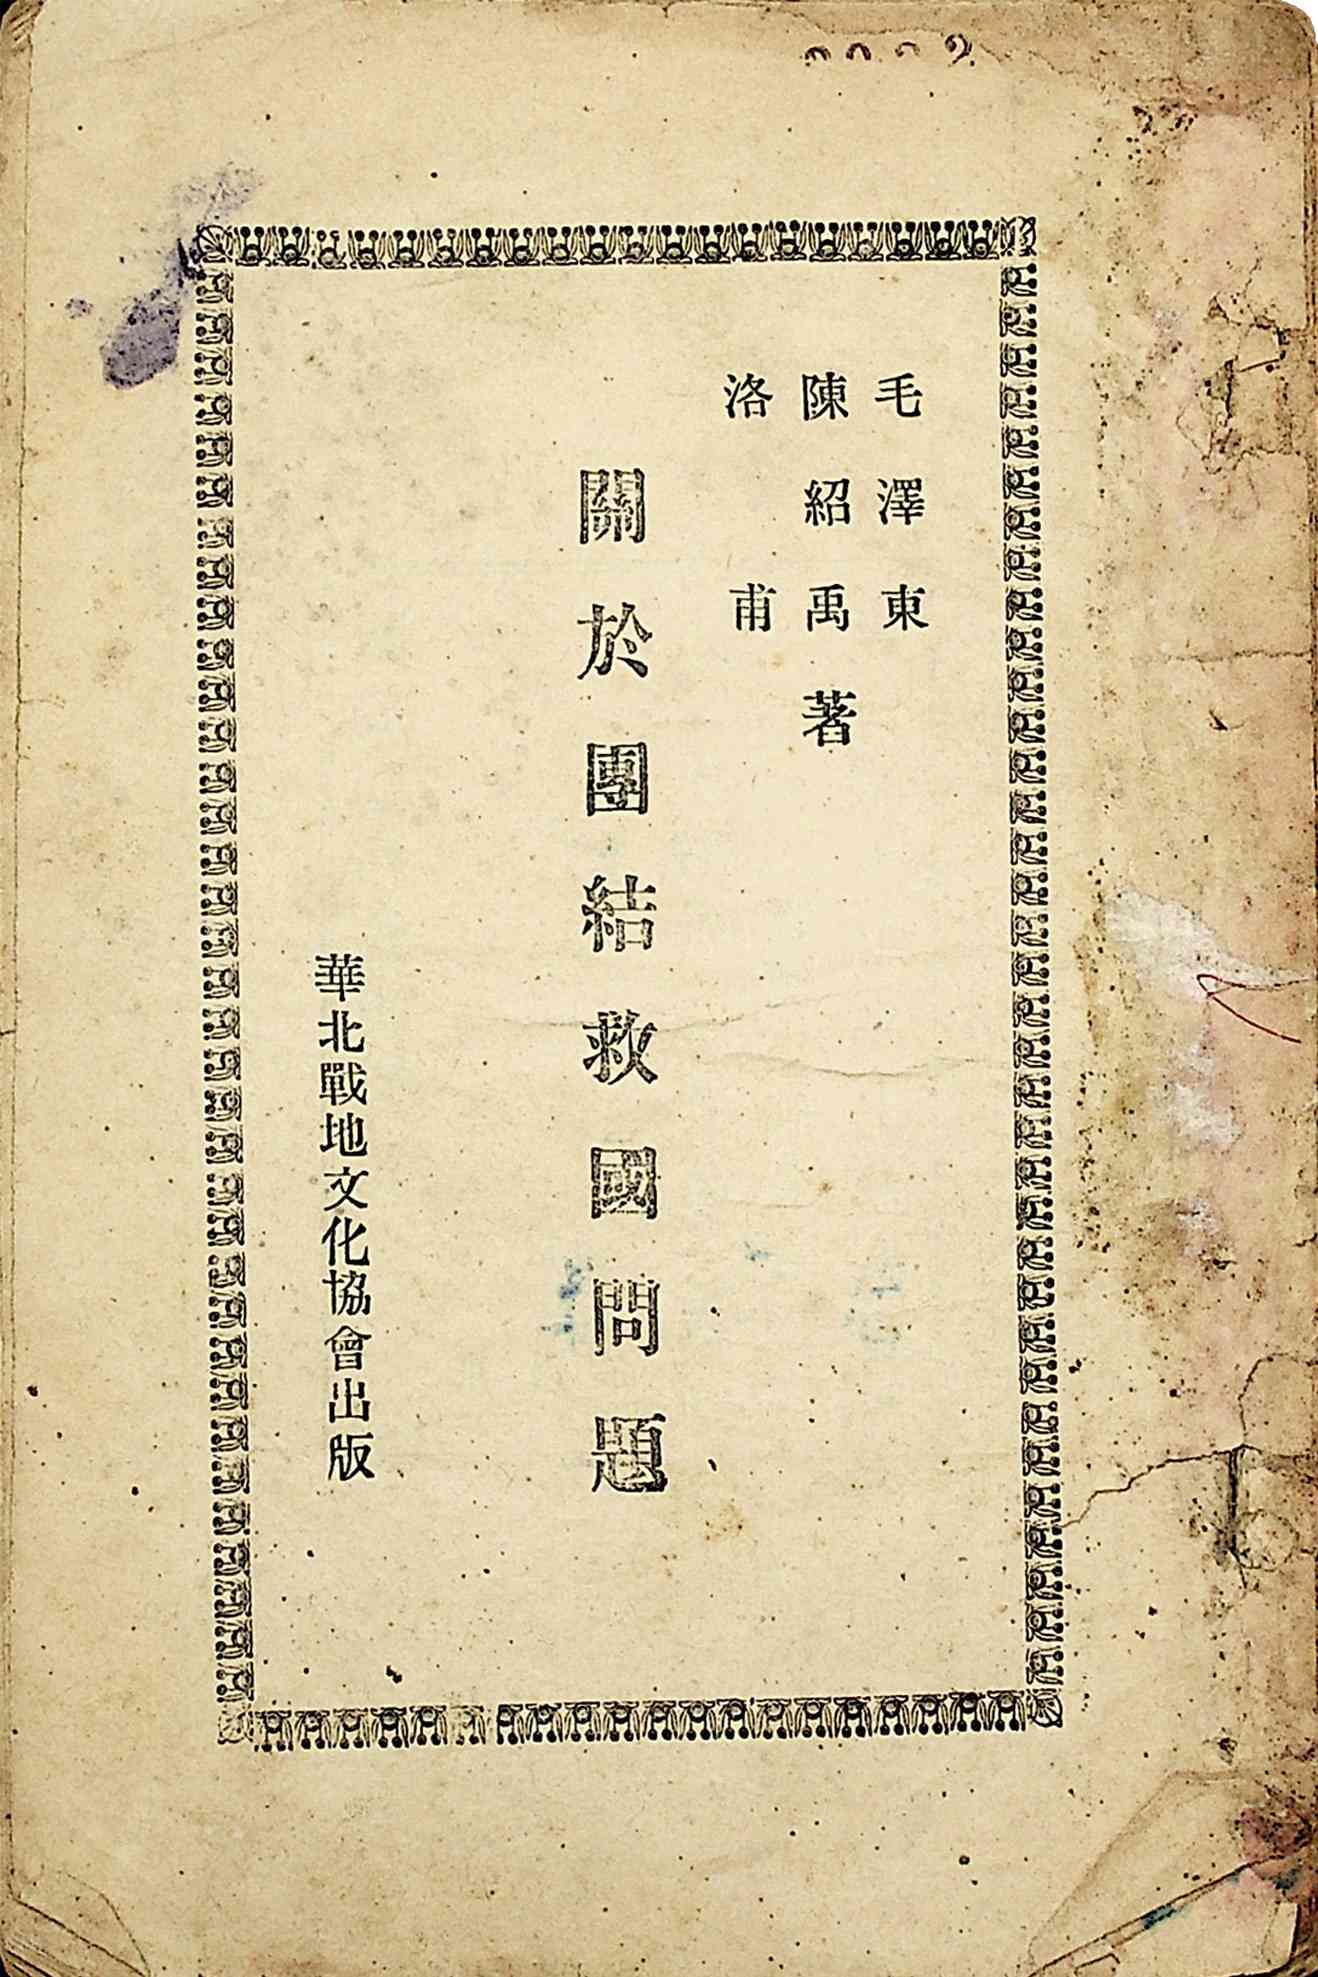 毛澤東
陳紹禹著
洛甫
關於團結救國問題
華北戰地文化協會出版